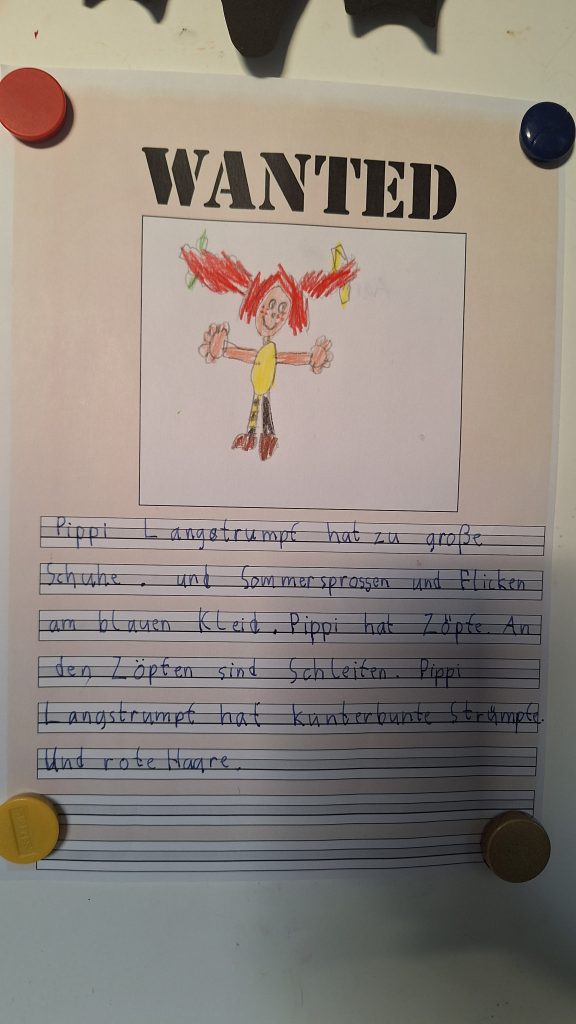 WANTED
Pippi Langstrumpf hat zu große
Schuhe. und Sommersprossen und Flicken
am blauen Kleid. Pippi hat Zöpfe. An
den Zöpfen sind Schleifen. Pippi
Langstrumpf hat kunterbunte Strümpfe.
Und rote Haare.